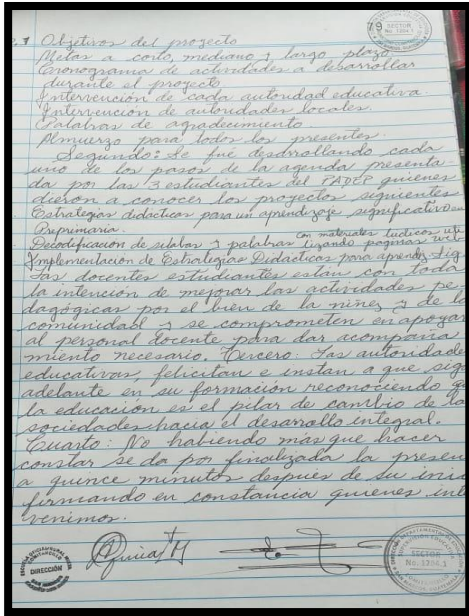 SECTOR
No. 1204.1
Objetivos del proyecto
Metas a corto, mediano y largo plazo
Cronograma de actividades a desarrollar
durante el proyecto
Intervención de cada autoridad educativa.
Intervención de autoridades locales.
Palabras de agradecimiento
Almuerzo para todos los presentes.
Segundo: Se fué desarrollando cada
uno de los pasos de la agenda presenta-
da por las 3 estudiantes del PADEP quienes
dieron a conocer los proyectos siguientes
Estrategias didácticas para un aprendizaje significativo en
Preprimaria.
con materiales lúdicos uti
Decodificación de sílabas y palabras lizando páginas web
Implementación de Estrategias Didácticas para aprendz. Sig
Las docentes estudiantes están con toda
la intención de mejorar las actividades pe-
dagógicas por el bien de la niñez y de la
comunidad y se comprometen en apoyar
al personal docente para dar acompaña
miento necesario. Tercero: Las autoridade
educativas, felicitan e instan a que siga
adelante en su formación reconociendo q
la educación es el pilar de cambio de la
sociedades hacia el desarrollo integral.
Cuarto: No habiendo más que hacer
constar se da por finalizada la presen
a quince minutos después de su inic
firmando en constancia quienes int
venimos.
DIRECCIÓN
SECTOR
No. 1204.1